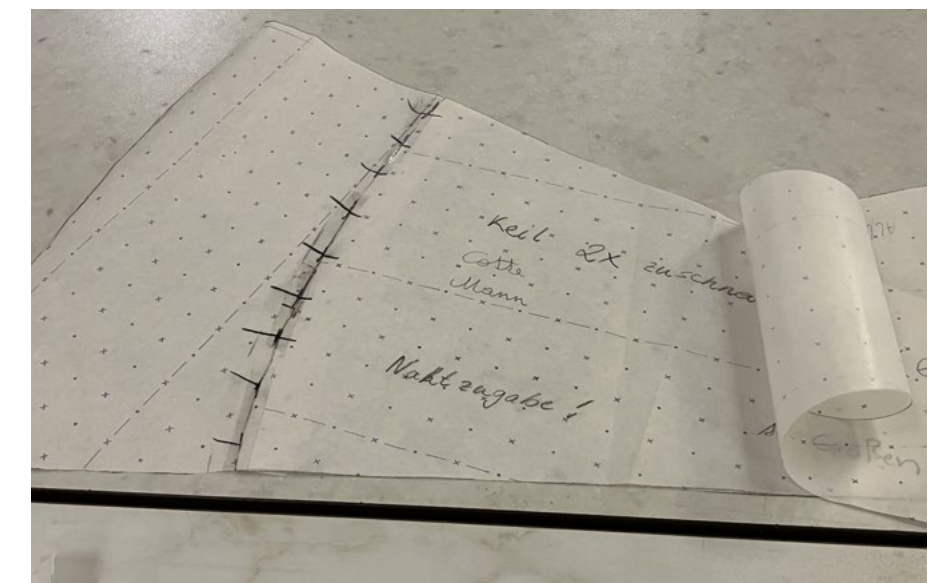 Keil 2x zuschnei
Cotte
Mann
Nahtzugabe!
Größen